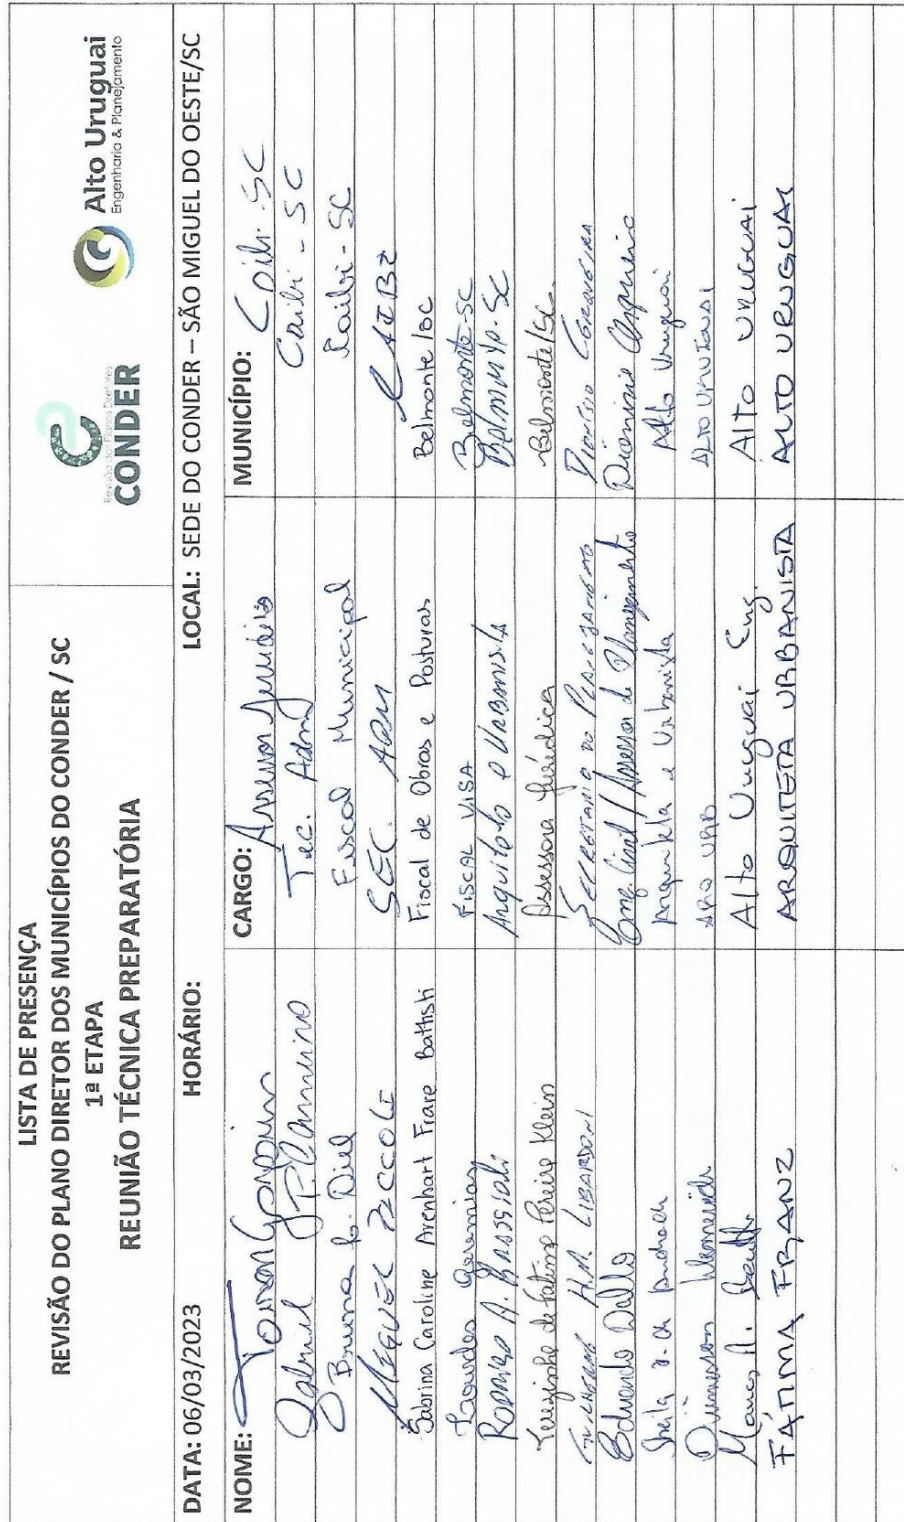 LISTA DE PRESENÇA
REVISÃO DO PLANO DIRETOR DOS MUNICÍPIOS DO CONDER / SC
1ª ETAPA
REUNIÃO TÉCNICA PREPARATÓRIA
Revisão dos Planos Diretores
CONDER
Alto Uruguai
Engenharia & Planejamento
DATA: 06/03/2023 HORÁRIO: LOCAL: SEDE DO CONDER – SÃO MIGUEL DO OESTE/SC
NOME: CARGO: Assessor Jurídico MUNICÍPIO: Caibi-SC
Gabriel Téc. Adm Caibi-SC
Bruna R. Diel Fiscal Municipal Caibi-SC
MIGUEL SEC. ADM CAIBI
Sabrina Caroline Arenhart Frare Battisti Fiscal de Obras e Posturas Belmonte/SC
Lourdes FISCAL VISA Belmonte-SC
Rodrigo A. Arquiteto e Urbanista Belmonte-SC
Terezinha de Fatima Pereira Klein Assessora Jurídica Belmonte/SC
H.M. LIBARDONI SECRETARIO DO PLANEJAMENTO Dionísio Cerqueira
Eduardo Dallo Eng. Civil / Assessor de Planejamento Dionísio Cerqueira
Sheila Arquiteta e Urbanista Alto Uruguai
ARQ URB ALTO URUGUAI
A. Alto Uruguai Eng. ALTO URUGUAI
FÁTIMA FRANZ ARQUITETA URBANISTA ALTO URUGUAI